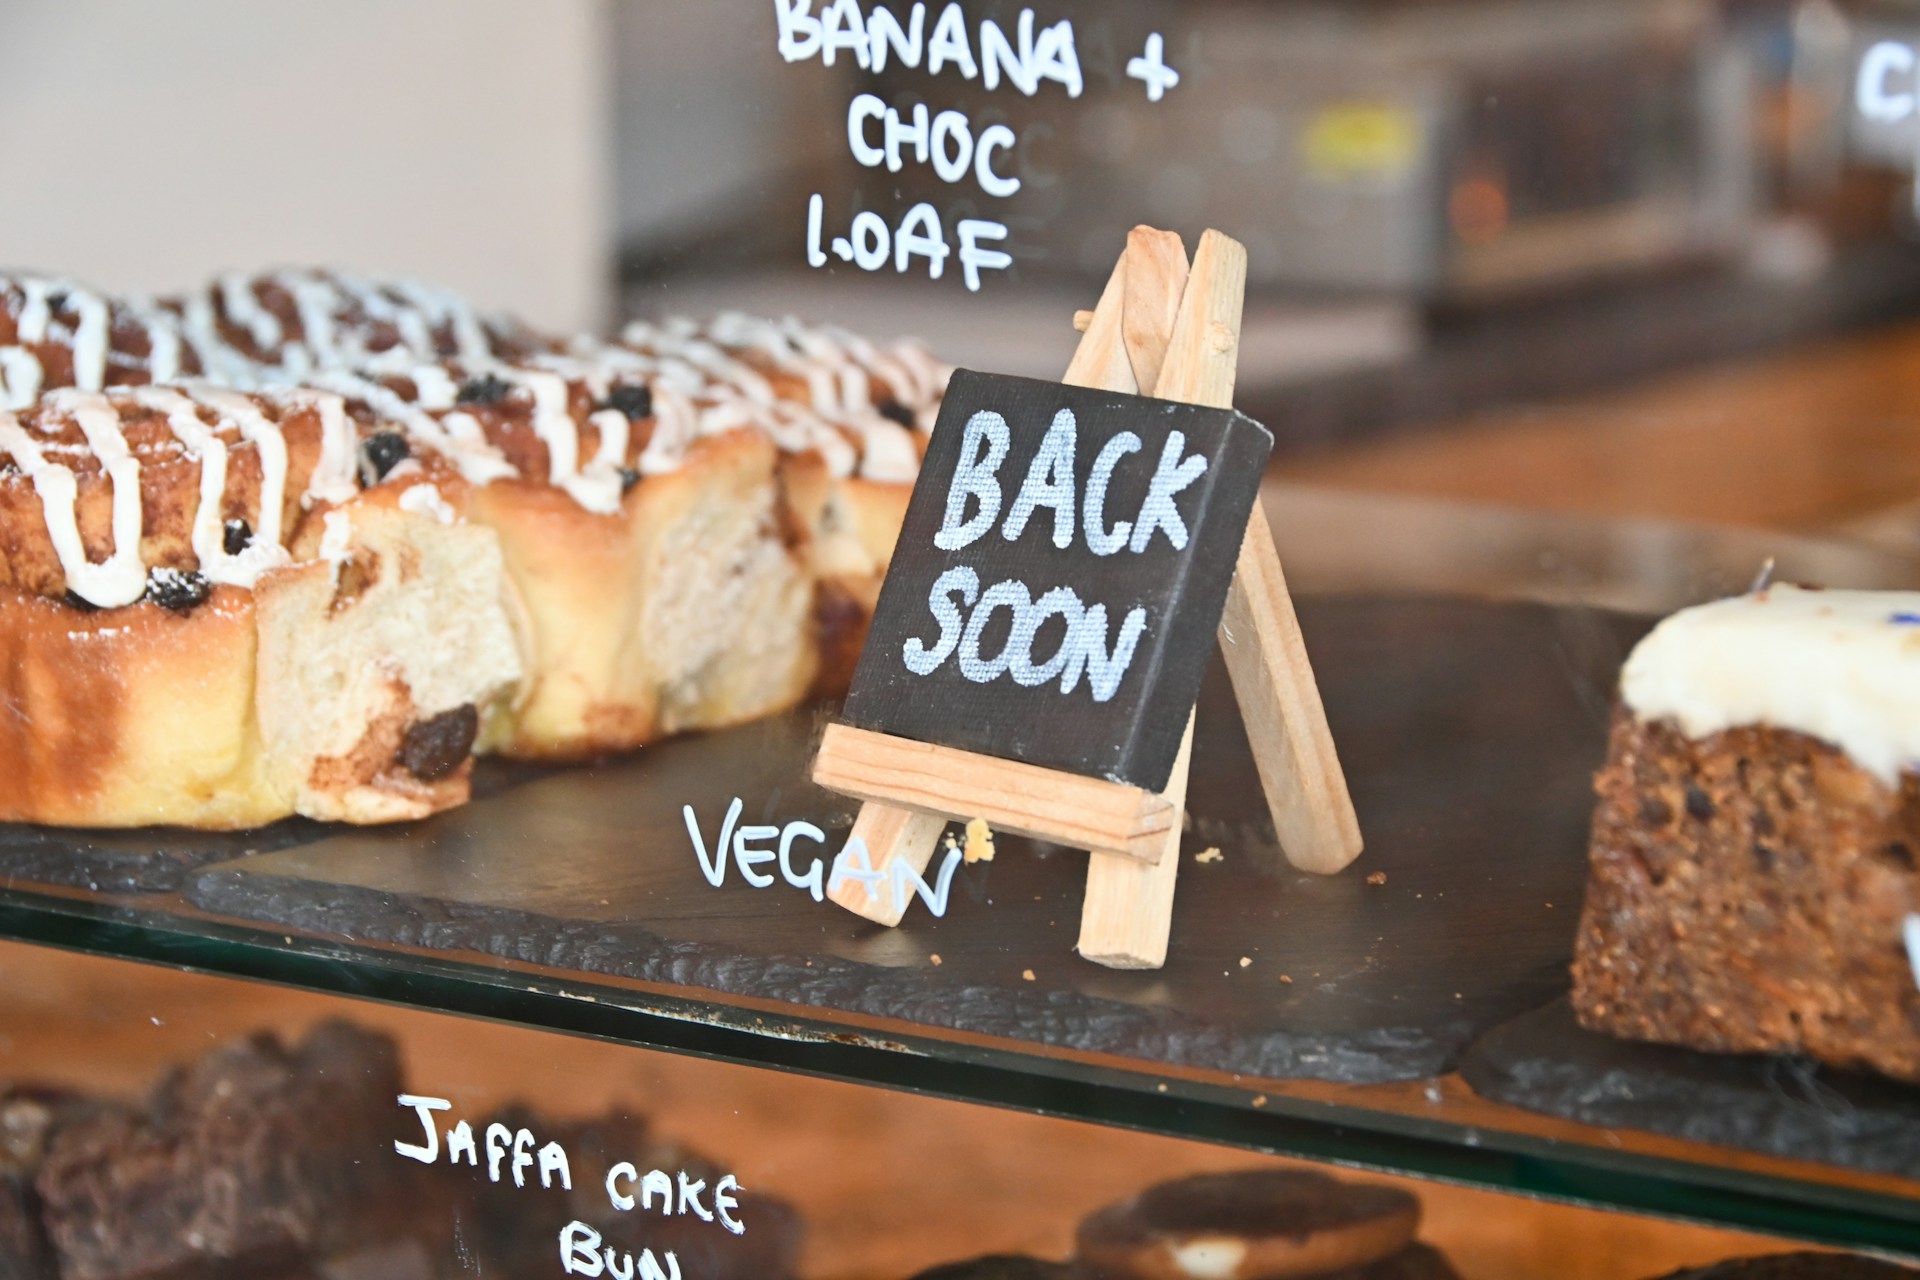 BANANA +
CHOC
LOAF
BACK
SOON
VEGAN
JAFFA CAKE
BUN